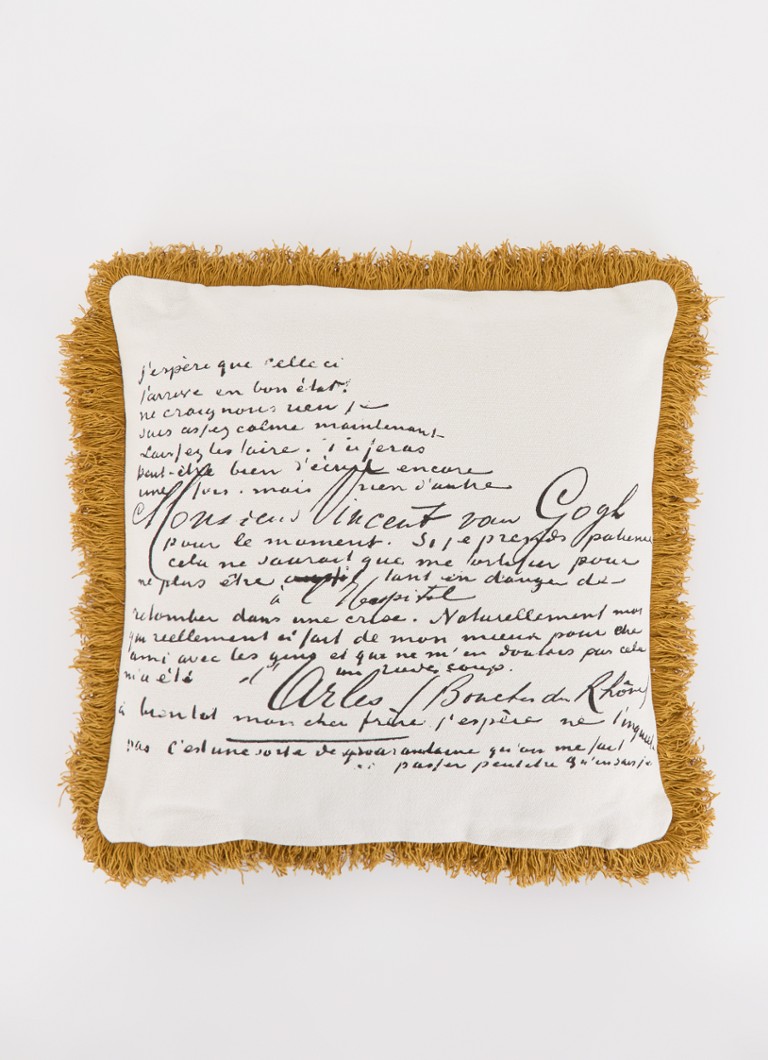 j'espère que celle ci
t'arrive en bon état.
ne craignons rien je
suis assez calme maintenant
Laissez les faire. Tu feras
peut-être bien d'écrire encore
une fois. mais rien d'autre
Monsieur Vincent van Gogh
pour le moment. Si je prends patience
cela ne saurait que me fortifier pour
ne plus être tant en danger de
à l'Hospital
retomber dans une crise. Naturellement moi
qui reellement ai fait de mon mieux pour être
ami avec les gens et que ne m'en doutais pas cela
m'a été un rude coup.
d'Arles (Bouches du Rhône)
à bientot mon cher frère j'espère ne t'inquiete
pas c'est une sorte de quarantaine qu'on me fait
passer peutetre qu'en sais je